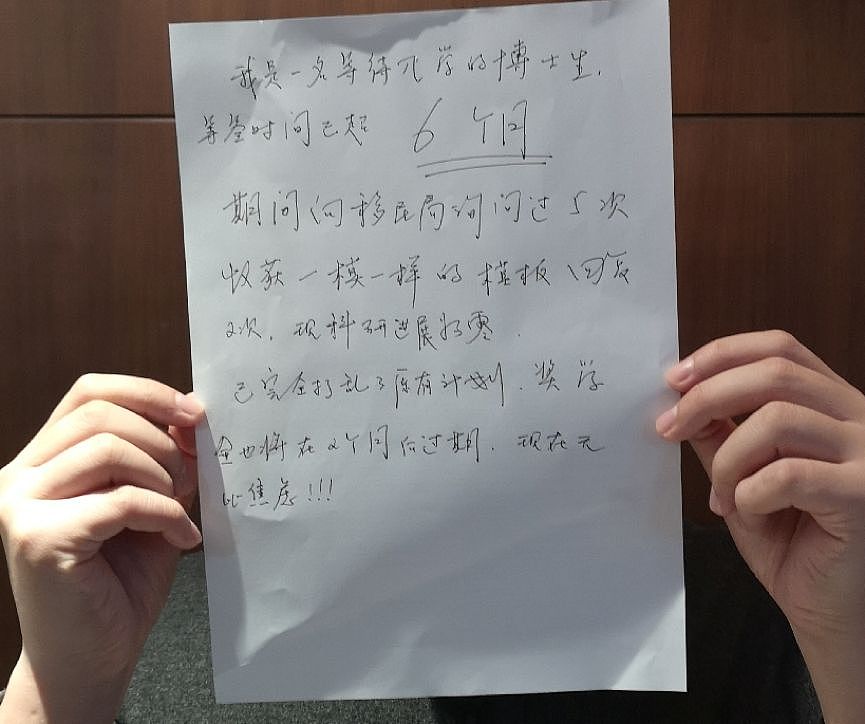 我是一名等待入学的博士生，
等签时间已超 6个月
期间向移民局询问过5次
收获一模一样的模板回复
2次，现科研进展为零．
已完全打乱了原有计划．奖学
金也将在2个月后过期．现在无
比焦虑！！！